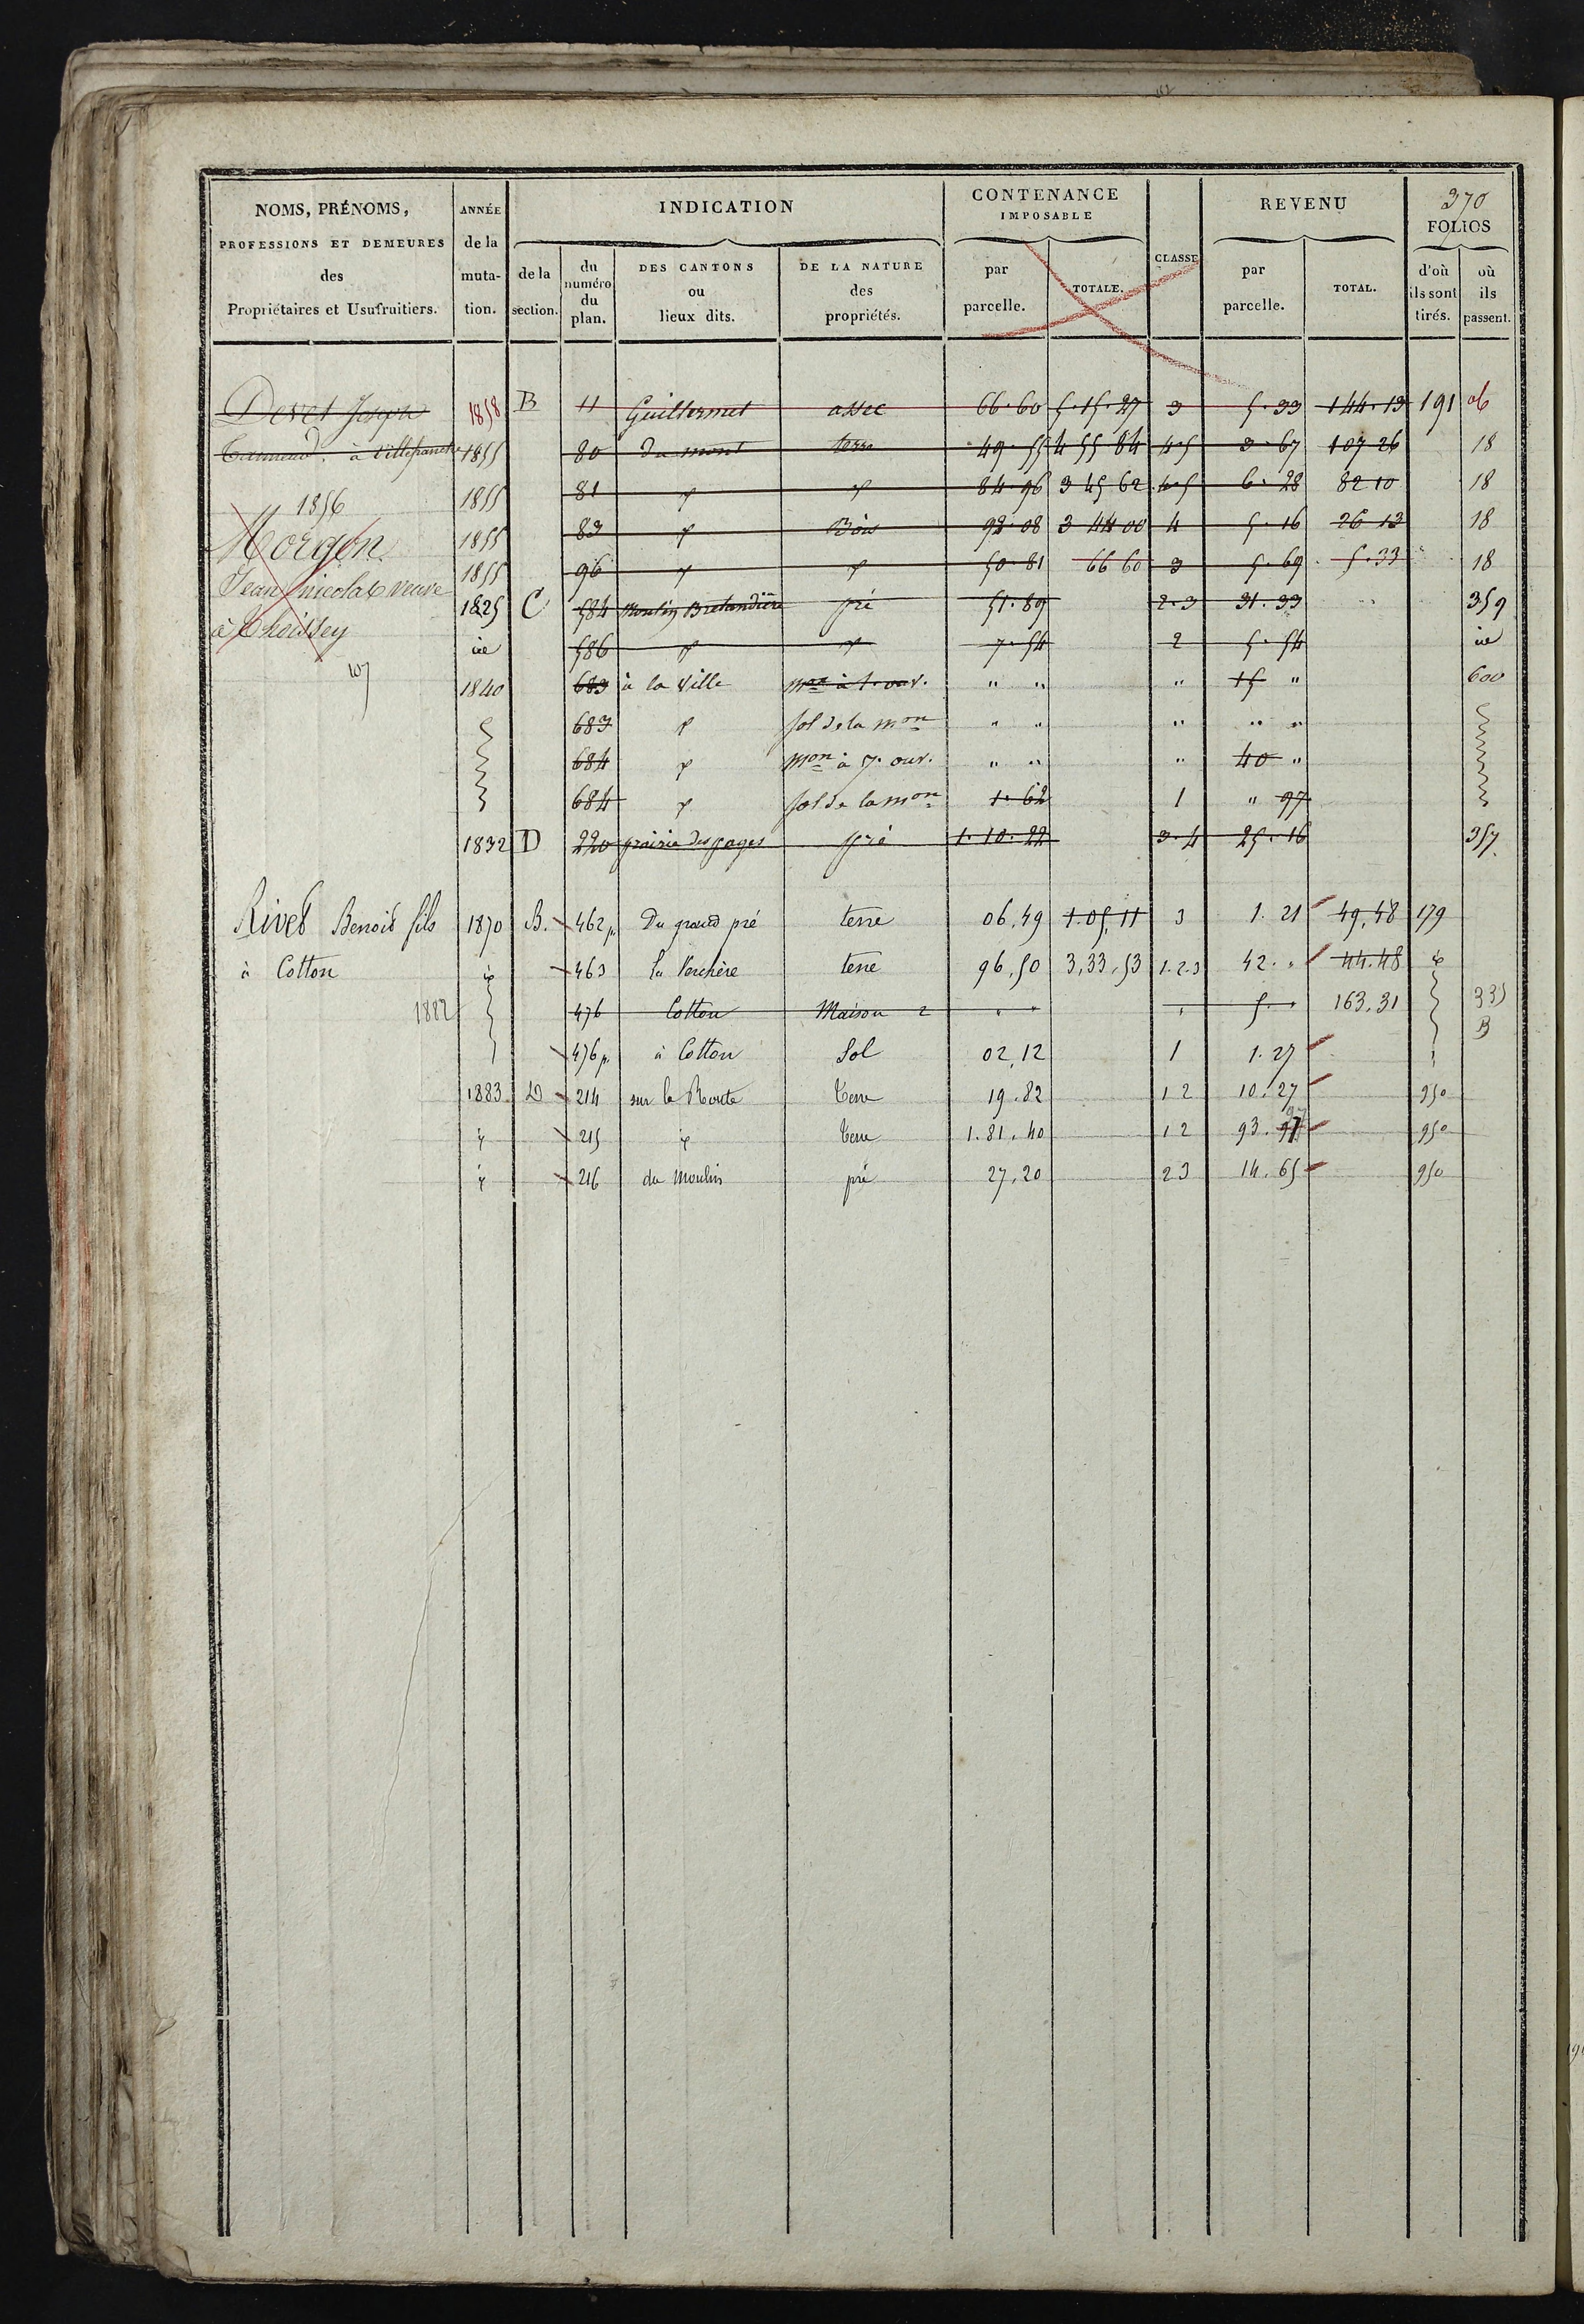 370
NOMS, PRÉNOMS, PROFESSIONS ET DEMEURES des Propriétaires et Usufruitiers.
ANNÉE de la mutation.
INDICATION
de la section.
du numéro du plan.
DES CANTONS ou lieux dits.
DE LA NATURE des propriétés.
CONTENANCE IMPOSABLE
par parcelle.
TOTALE.
CLASSE
REVENU
par parcelle.
TOTAL.
FOLIOS
d'où ils sont tirés.
où ils passent.
Joseph 1858 B 11 Guillermet assec 66.60 5.15.27 3 5.33 144.13 191
à Villefranche 1855 80 du mont terre 49.55 4 55 84 4.5 3.67 107 26 18
1855 81 d d 84.96 3 45 62 4.5 6.28 82 10 18
1856
Morgon 1855 83 d Bois 92.08 3 44 00 4 5.16 26 13 18
1855 96 d d 50.81 66 60 3 5.69 5.33 18
Jean nicolas veuve 1825 C 584 Moulin Bretandière pré 51.89 2.3 31.33 359
à
id 586 d d 7.54 2 5.54 id
107
1840 683 à la Ville mon à 1. ouv. " " " 15 " 600
683 d sol de la mon " " " " "
684 d mon à 7. ouv. " " " 40 "
684 d sol de la mon 1.62 1 " 97
1832 D 220 prairie des pages pré 1.10.22 3.4 25.16 357
Rivet Benoit fils 1870 B. 462 p. Du grand pré terre 06,49 1.05,11 3 1.21 49,48 179
à Cotton d 463 la Verchère terre 96,50 3,33,53 1.2.3 42. " 44.48 d
1882 476 Cotton Maison 2 " " " 5. " 163,31 335
B
476 p. à Cotton Sol 02,12 1 1.27
1883 D 214 sur la Route Terre 19.82 1 2 10.27 950
d 215 d Terre 1.81.40 1 2 93.97 950
d 216 du moulin pré 27,20 2 3 14.65 950